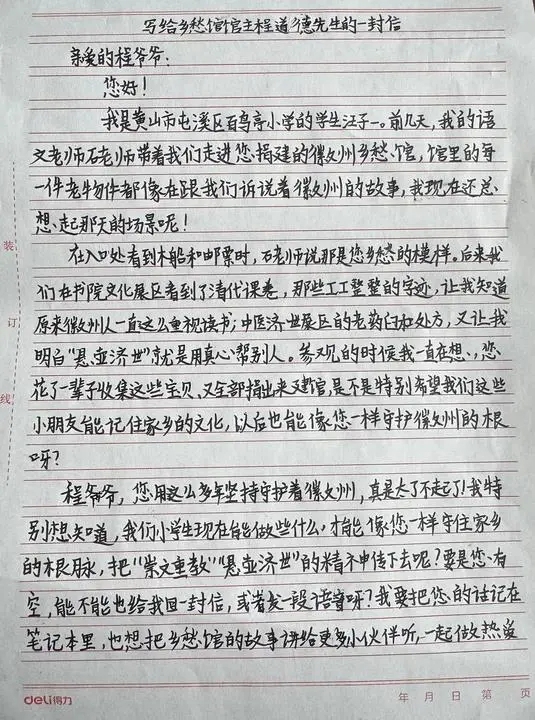 写给乡愁馆馆主程道德先生的一封信
亲爱的程爷爷：
您好！
我是黄山市屯溪区百鸟亭小学的学生汪子一。前几天，我的语
文老师石老师带着我们走进您捐建的徽州乡愁馆，馆里的每
一件老物件都像在跟我们诉说着徽州的故事，我现在还总
想起那天的场景呢！
在入口处看到木船和邮票时，石老师说那是您乡愁的模样。后来我
们在书院文化展区看到了清代课卷，那些工工整整的字迹，让我知道
原来徽州人一直这么重视读书；中医济世展区的老药臼和处方，又让我
明白“悬壶济世”就是用真心帮别人。参观的时候我一直在想，您
花了一辈子收集这些宝贝，又全部捐出来建馆，是不是特别希望我们这些
小朋友能记住家乡的文化，以后也能像您一样守护徽州的根
呀？
程爷爷，您用这么多年坚持守护着徽州，真是太了不起了！我特
别想知道，我们小学生现在能做些什么，才能像您一样守住家乡
的根脉，把“崇文重教”“悬壶济世”的精神传下去呢？要是您有
空，能不能也给我回一封信，或者发一段语音呀？我要把您的话记在
笔记本里，也想把乡愁馆的故事讲给更多小伙伴听，一起做热爱
装
订
线
deli得力
年 月 日 第 页